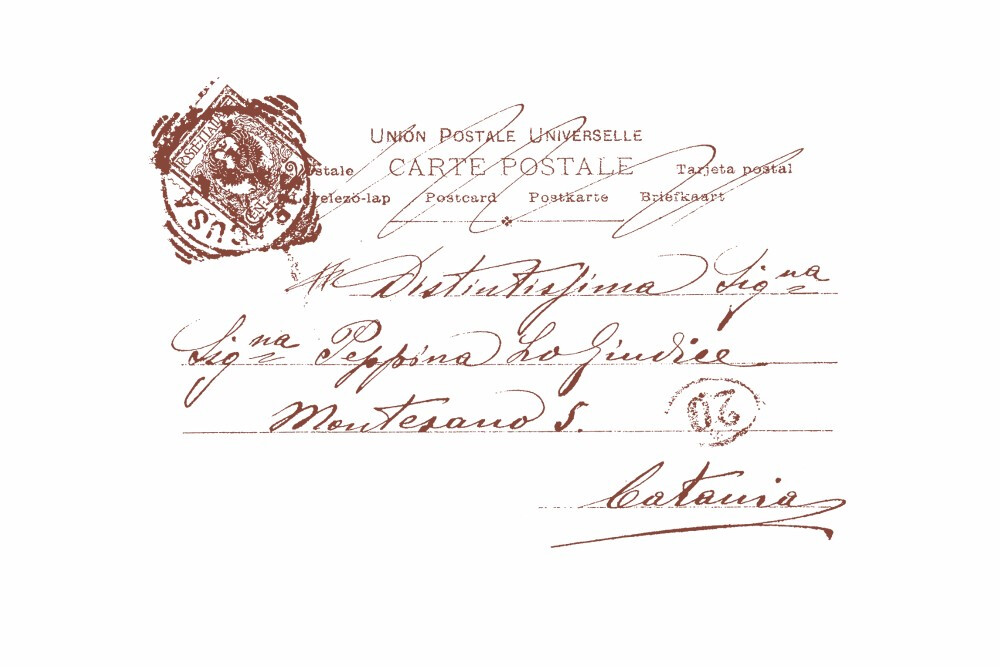 UNION POSTALE UNIVERSELLE
CARTE POSTALE
Tarjeta postal
Levelező-lap Postcard Postkarte Briefkaart
Distintissima Signa
Signa Peppina Lo Giudice
Montesano 5.
Catania